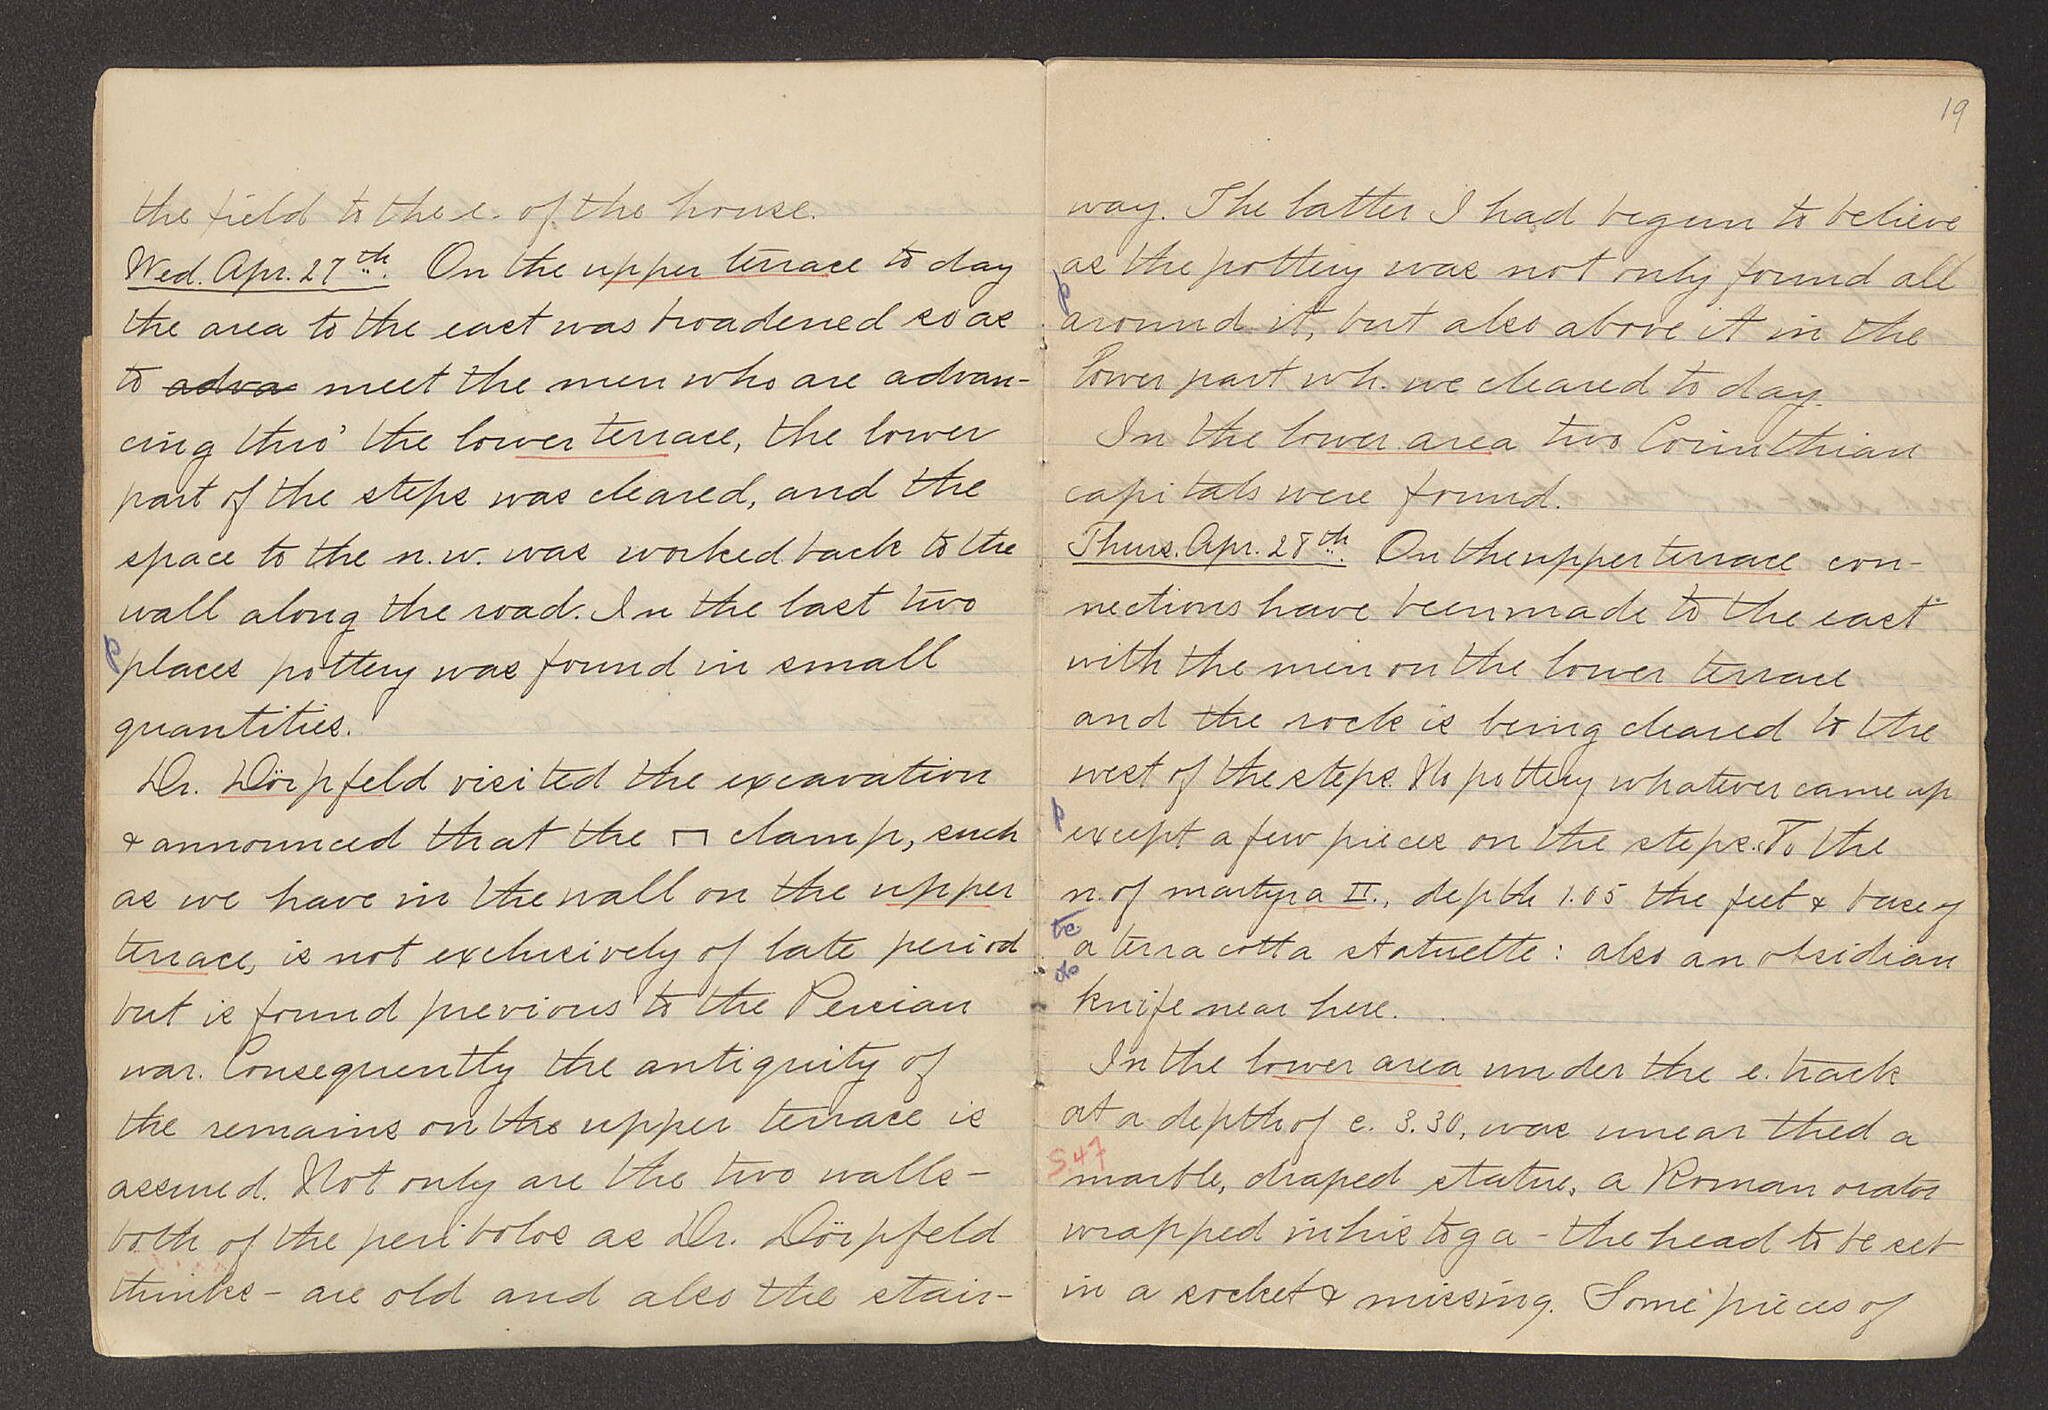 the field to the e. of the house.
Wed. Apr. 27th. On the upper terrace to day
the area to the east was broadened so as
to adva meet the men who are advan-
cing thro' the lower terrace, the lower
part of the steps was cleared, and the
space to the n.w. was worked back to the
wall along the road. In the last two
p places pottery was found in small
quantities.
Dr. Dörpfeld visited the excavation
& announced that the ⊓ clamp, such
as we have in the wall on the upper
terrace, is not exclusively of late period
but is found previous to the Persian
war. Consequently the antiquity of
the remains on the upper terrace is
assured. Not only are the two walls -
both of the peribolos as Dr. Dörpfeld
thinks - are old and also the stair-
19
way. The latter I had begun to believe
as the pottery was not only found all
p around it, but also above it in the
lower part wh. we cleared to day.
In the lower area two Corinthian
capitals were found.
Thurs. Apr. 28th. On the upper terrace con-
nections have been made to the east
with the men on the lower terrace
and the rock is being cleared to the
west of the steps. No pottery whatever came up
p except a few pieces on the steps. To the
n. of martyra II., depth 1.05 the feet & base of
tc a terra cotta statuette: also an obsidian
knife near here.
In the lower area under the e. track
at a depth of c. 3.30, was unearthed a
S.47 marble, draped statue, a Roman orator
wrapped in his toga - the head to be set
in a socket & missing. Some pieces of